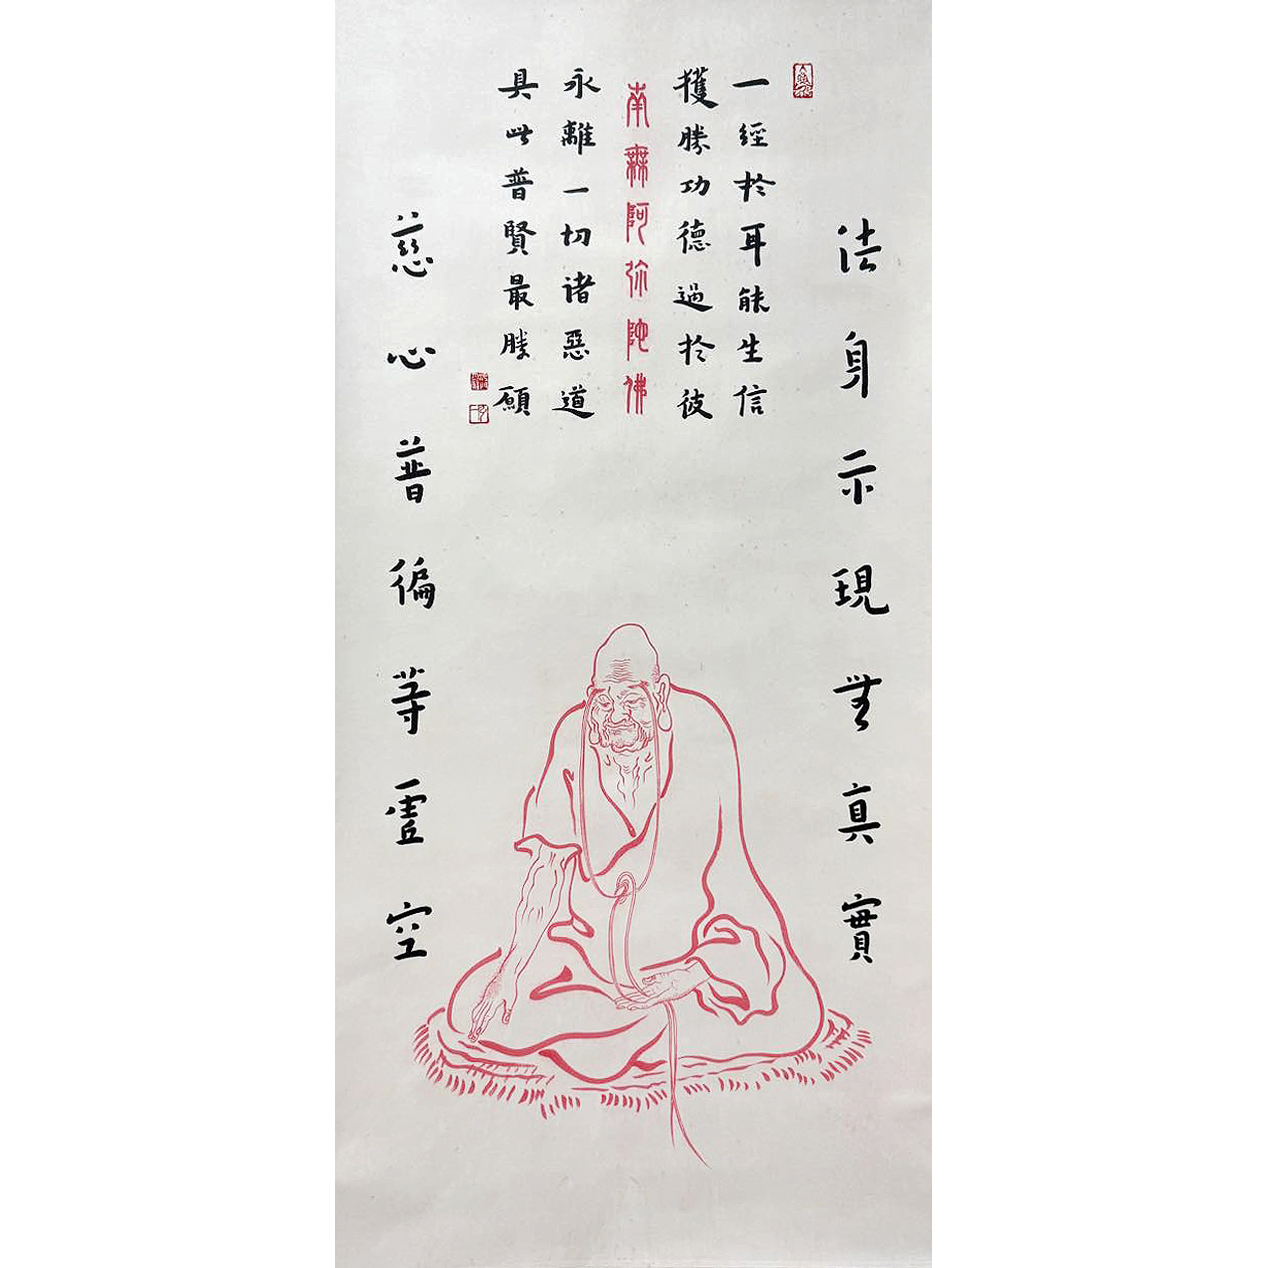 法身示現無真實
一經於耳能生信
獲勝功德過於彼
南無阿弥陀佛
永離一切諸惡道
具此普賢最勝願
慈心普徧等虛空